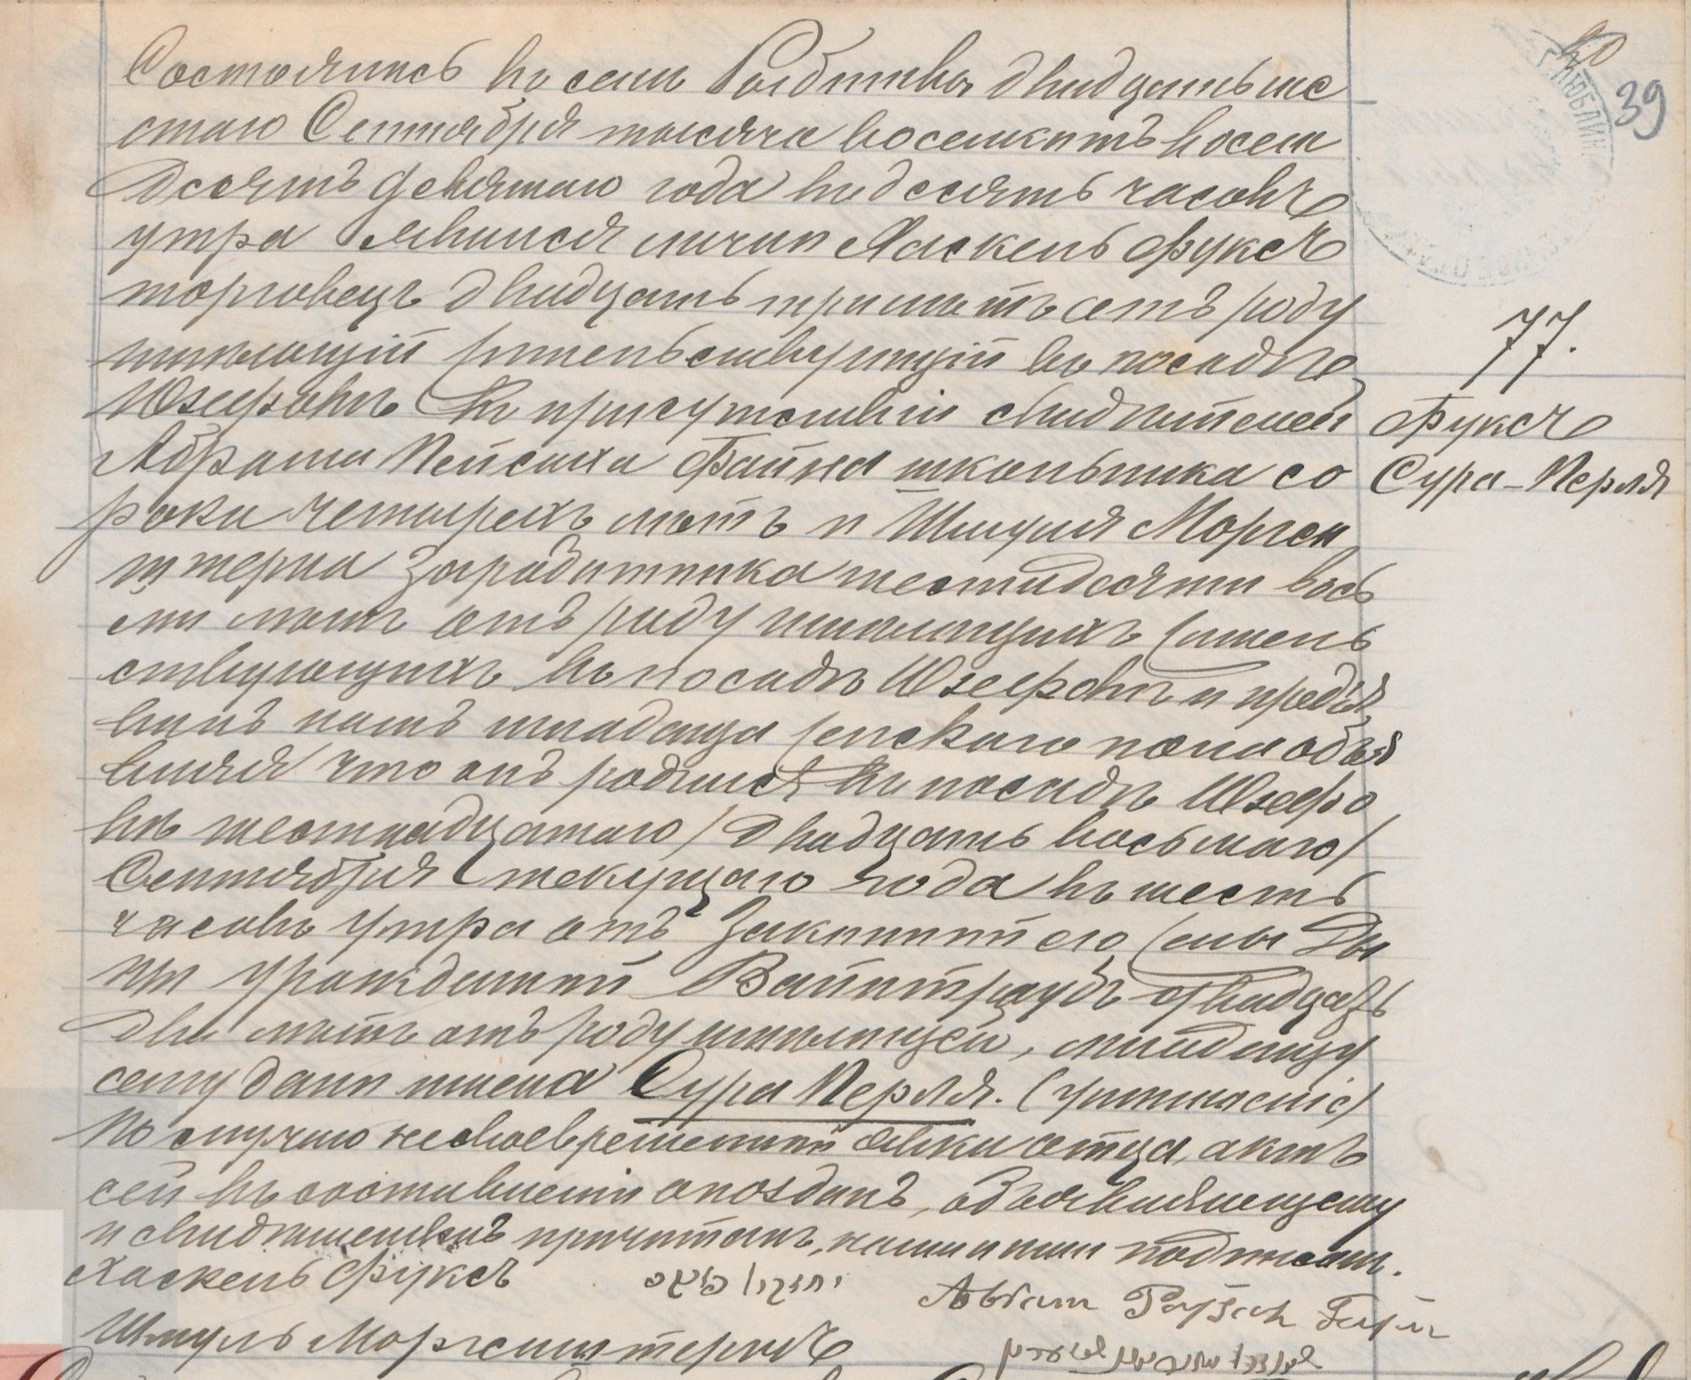 39
Состоялось въ селѣ Рыбитвы двадцать ше
стаго Сентября тысяча восемсотъ восем
десятъ девятаго года въ десять часовъ
утра Явился лично Хаскель Фуксъ
торговецъ двадцать три лѣтъ отъ роду
имѣющій жительствующій въ посадѣ
Юзефовѣ въ присутствіи свидѣтелей
Абрама Пейсаха Файна школьника со
рока четырехъ лѣтъ и Шмуля Морген
штерна Заробитника шестидесяти вось
ми лѣтъ отъ роду имѣющихъ житель
ствующихъ въ посадѣ Юзефовѣ и предъя
вилъ намъ младенца женскаго пола объя
вляя что онъ родился въ посадѣ Юзефо
вѣ шестнадцатаго / двадцать восьмаго /
Сентября текущаго года въ шесть
часовъ утра отъ Законной его жены Ды
ны урожденной Вайнтраубъ двадцать
два лѣтъ отъ роду имѣющей, младенцу
сему дано имена Сура Перля.
По случаю несвоевременной явки отца, актъ
сей въ составленіи опозданъ, объявляющему
и свидѣтелямъ прочитанъ, нами и ими подписанъ.
Хаскель Фуксъ יחזקאל פוקס Abram Pejsach Fajn
Шмуль Моргенштернъ
77.
Фуксъ
Сура-Перля